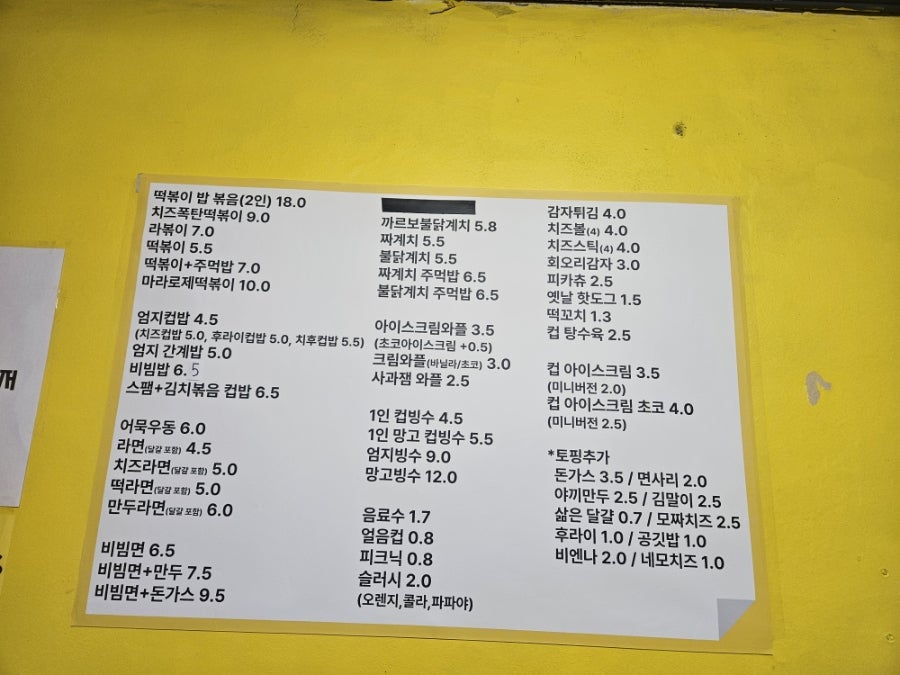 떡볶이 밥 볶음(2인) 18.0
치즈폭탄떡볶이 9.0
라볶이 7.0
떡볶이 5.5
떡볶이+주먹밥 7.0
마라로제떡볶이 10.0
엄지컵밥 4.5
(치즈컵밥 5.0, 후라이컵밥 5.0, 치후컵밥 5.5)
엄지 간계밥 5.0
비빔밥 6.5
스팸+김치볶음 컵밥 6.5
어묵우동 6.0
라면(달걀 포함) 4.5
치즈라면(달걀 포함) 5.0
떡라면(달걀 포함) 5.0
만두라면(달걀 포함) 6.0
비빔면 6.5
비빔면+만두 7.5
비빔면+돈가스 9.5
까르보불닭게치 5.8
짜계치 5.5
불닭게치 5.5
짜계치 주먹밥 6.5
불닭게치 주먹밥 6.5
아이스크림와플 3.5
(초코아이스크림 +0.5)
크림와플(바닐라/초코) 3.0
사과잼 와플 2.5
1인 컵빙수 4.5
1인 망고 컵빙수 5.5
엄지빙수 9.0
망고빙수 12.0
음료수 1.7
얼음컵 0.8
피크닉 0.8
슬러시 2.0
(오렌지,콜라,파파야)
감자튀김 4.0
치즈볼(4) 4.0
치즈스틱(4) 4.0
회오리감자 3.0
피카츄 2.5
옛날 핫도그 1.5
떡꼬치 1.3
컵 탕수육 2.5
컵 아이스크림 3.5
(미니버전 2.0)
컵 아이스크림 초코 4.0
(미니버전 2.5)
*토핑추가
돈가스 3.5 / 면사리 2.0
야끼만두 2.5 / 김말이 2.5
삶은 달걀 0.7 / 모짜치즈 2.5
후라이 1.0 / 공깃밥 1.0
비엔나 2.0 / 네모치즈 1.0